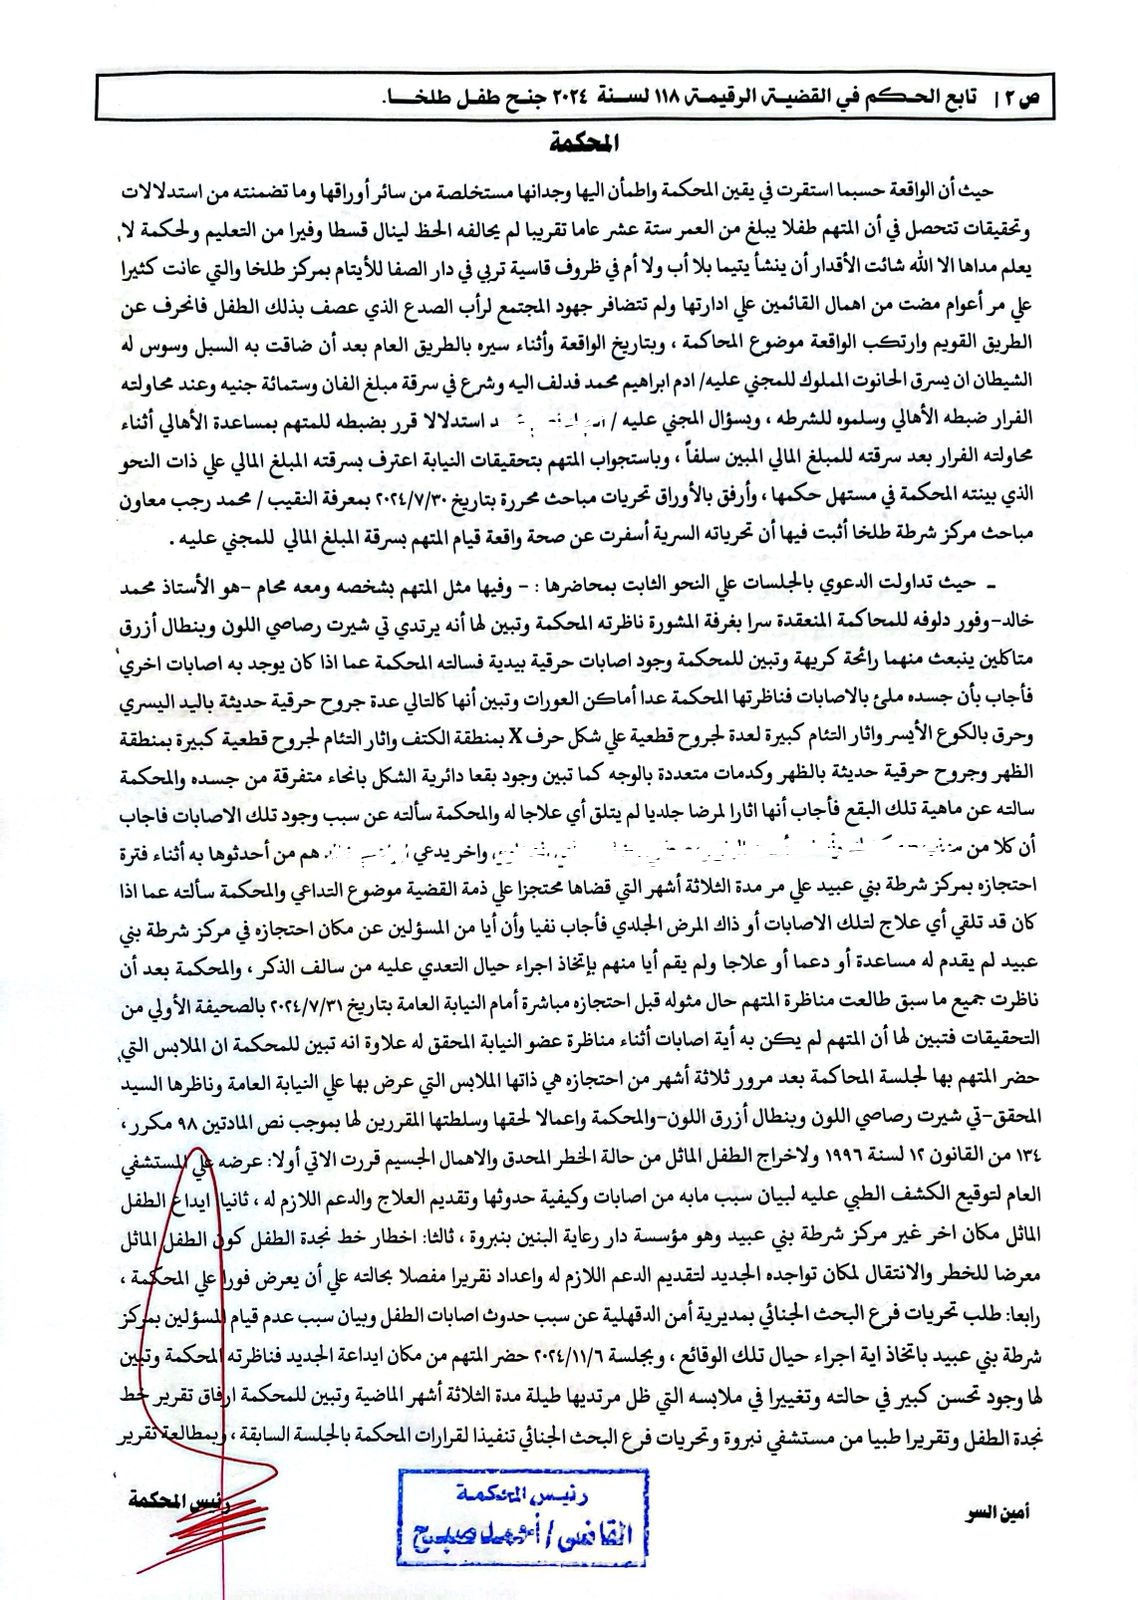 ص ٢ | تابع الحكم في القضية الرقيمة ١١٨ لسنة ٢٠٢٤ جنح طفل طلخا.
المحكمة
حيث أن الواقعة حسبما استقرت في يقين المحكمة واطمأن اليها وجدانها مستخلصة من سائر أوراقها وما تضمنته من استدلالات
وتحقيقات تتحصل في أن المتهم طفلا يبلغ من العمر ستة عشر عاما تقريبا لم يحالفه الحظ لينال قسطا وفيرا من التعليم ولحكمة لا
يعلم مداها الا الله شائت الأقدار أن ينشأ يتيما بلا أب ولا أم في ظروف قاسية تربي في دار الصفا للأيتام بمركز طلخا والتي عانت كثيرا
علي مر أعوام مضت من اهمال القائمين علي ادارتها ولم تتضافر جهود المجتمع لرأب الصدع الذي عصف بذلك الطفل فانحرف عن
الطريق القويم وارتكب الواقعة موضوع المحاكمة ، وبتاريخ الواقعة وأثناء سيره بالطريق العام بعد أن ضاقت به السبل وسوس له
الشيطان ان يسرق الحانوت المملوك للمجني عليه/ ادم ابراهيم محمد فدلف اليه وشرع في سرقة مبلغ الفان وستمائة جنيه وعند محاولته
الفرار ضبطه الأهالي وسلموه للشرطه ، وبسؤال المجني عليه / استدلالا قرر بضبطه للمتهم بمساعدة الأهالي أثناء
محاولته الفرار بعد سرقته للمبلغ المالي المبين سلفاً ، وباستجواب المتهم بتحقيقات النيابة اعترف بسرقته المبلغ المالي علي ذات النحو
الذي بينته المحكمة في مستهل حكمها ، وأرفق بالأوراق تحريات مباحث محررة بتاريخ ٢٠٢٤/٧/٣٠ بمعرفة النقيب / محمد رجب معاون
مباحث مركز شرطة طلخا أثبت فيها أن تحرياته السرية أسفرت عن صحة واقعة قيام المتهم بسرقة المبلغ المالي للمجني عليه .
- حيث تداولت الدعوي بالجلسات علي النحو الثابت بمحاضرها : - وفيها مثل المتهم بشخصه ومعه محام -هو الأستاذ محمد
خالد-وفور دلوفه للمحاكمة المنعقدة سرا بغرفة المشورة ناظرته المحكمة وتبين لها أنه يرتدي تي شيرت رصاصي اللون وبنطال أزرق
متاكلين ينبعث منهما رائحة كريهة وتبين للمحكمة وجود اصابات حرقية بيدية فسالته المحكمة عما اذا كان يوجد به اصابات اخري
فأجاب بأن جسده ملئ بالاصابات فناظرتها المحكمة عدا أماكن العورات وتبين أنها كالتالي عدة جروح حرقية حديثة باليد اليسري
وحرق بالكوع الأيسر واثار التئام كبيرة لعدة لجروح قطعية علي شكل حرف X بمنطقة الكتف واثار التئام لجروح قطعية كبيرة بمنطقة
الظهر وجروح حرقية حديثة بالظهر وكدمات متعددة بالوجه كما تبين وجود بقعا دائرية الشكل بانحاء متفرقة من جسده والمحكمة
سالته عن ماهية تلك البقع فأجاب أنها اثارا لمرضا جلديا لم يتلق أي علاجا له والمحكمة سألته عن سبب وجود تلك الاصابات فاجاب
أن كلا من واخر يدعي هم من أحدثوها به أثناء فترة
احتجازه بمركز شرطة بني عبيد علي مر مدة الثلاثة أشهر التي قضاها محتجزا علي ذمة القضية موضوع التداعي والمحكمة سألته عما اذا
كان قد تلقي أي علاج لتلك الاصابات أو ذاك المرض الجلدي فأجاب نفيا وأن أيا من المسؤلين عن مكان احتجازه في مركز شرطة بني
عبيد لم يقدم له مساعدة أو دعما أو علاجا ولم يقم أيا منهم بإتخاذ اجراء حيال التعدي عليه من سالف الذكر ، والمحكمة بعد أن
ناظرت جميع ما سبق طالعت مناظرة المتهم حال مثوله قبل احتجازه مباشرة أمام النيابة العامة بتاريخ ٢٠٢٤/٧/٣١ بالصحيفة الأولي من
التحقيقات فتبين لها أن المتهم لم يكن به أية اصابات أثناء مناظرة عضو النيابة المحقق له علاوة انه تبين للمحكمة ان الملابس التي
حضر المتهم بها لجلسة المحاكمة بعد مرور ثلاثة أشهر من احتجازه هي ذاتها الملابس التي عرض بها علي النيابة العامة وناظرها السيد
المحقق-تي شيرت رصاصي اللون وبنطال أزرق اللون-والمحكمة واعمالا لحقها وسلطتها المقررين لها بموجب نص المادتين ٩٨ مكرر ،
١٣٤ من القانون ١٢ لسنة ١٩٩٦ ولاخراج الطفل الماثل من حالة الخطر المحدق والاهمال الجسيم قررت الاتي أولا: عرضه علي المستشفي
العام لتوقيع الكشف الطبي عليه لبيان سبب مابه من اصابات وكيفية حدوثها وتقديم العلاج والدعم اللازم له ، ثانيا ايداع الطفل
الماثل مكان اخر غير مركز شرطة بني عبيد وهو مؤسسة دار رعاية البنين بنبروة ، ثالثا: اخطار خط نجدة الطفل كون الطفل الماثل
معرضا للخطر والانتقال لمكان تواجده الجديد لتقديم الدعم اللازم له واعداد تقريرا مفصلا بحالته علي أن يعرض فورا علي المحكمة ،
رابعا: طلب تحريات فرع البحث الجنائي بمديرية أمن الدقهلية عن سبب حدوث اصابات الطفل وبيان سبب عدم قيام المسؤلين بمركز
شرطة بني عبيد باتخاذ اية اجراء حيال تلك الوقائع ، وبجلسة ٢٠٢٤/١١/٦ حضر المتهم من مكان ايداعة الجديد فناظرته المحكمة وتبين
لها وجود تحسن كبير في حالته وتغييرا في ملابسه التي ظل مرتديها طيلة مدة الثلاثة أشهر الماضية وتبين للمحكمة ارفاق تقرير خط
نجدة الطفل وتقريرا طبيا من مستشفي نبروة وتحريات فرع البحث الجنائي تنفيذا لقرارات المحكمة بالجلسة السابقة ، وبمطالعة تقرير
أمين السر
رئيس المحكمة
رئيس المحكمة
القاضي/ أحمد صبيح